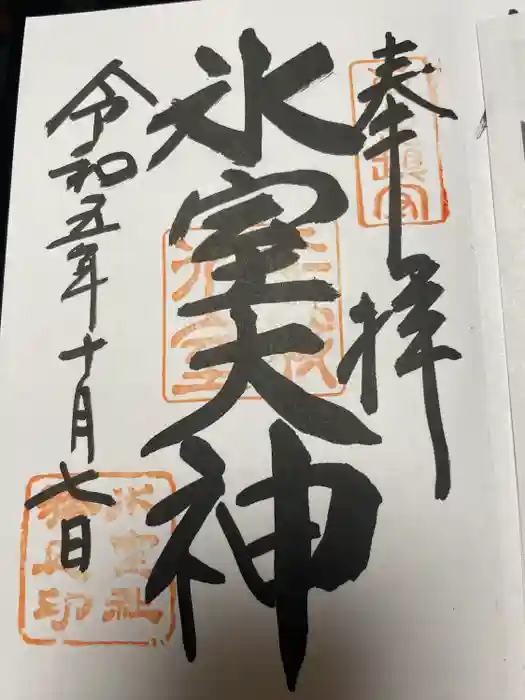 奉拝
氷室大神
令和五年十月七日
氷室社
務所印